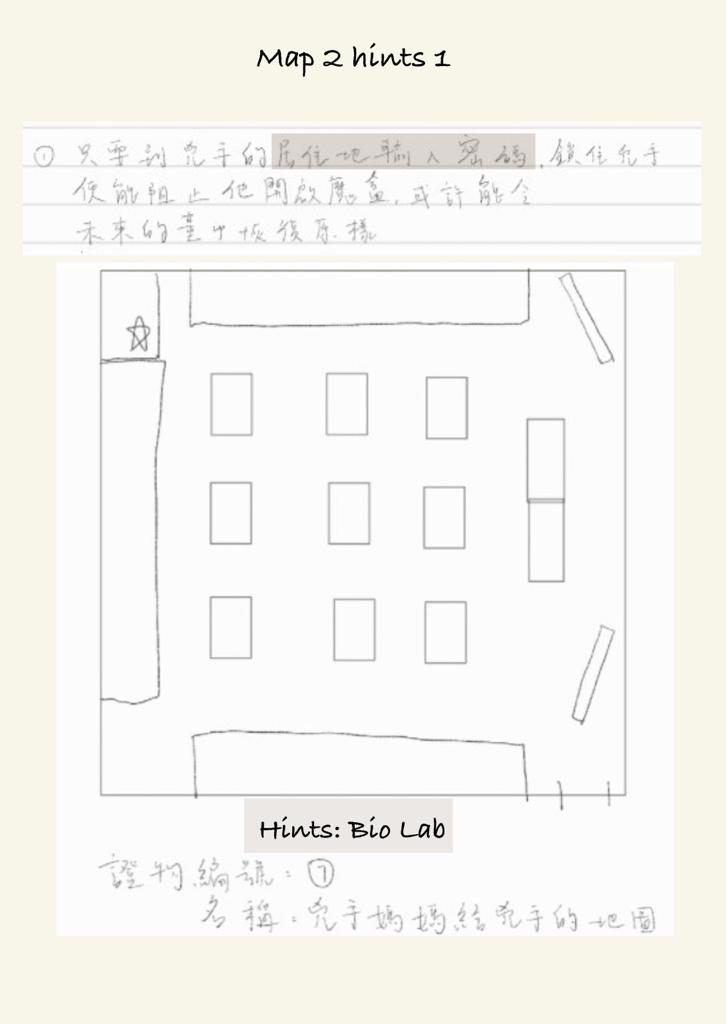 Map 2 hints 1
① 只要到兇手的居住地輸入密碼,鎖住兇手
便能阻止他開啟魔盒,或許能令
未來的臺中恢復原樣
Hints: Bio Lab
證物編號:⑦
名稱:兇手媽媽給兇手的地圖